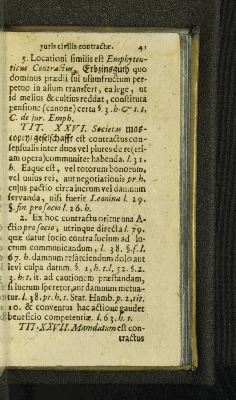 juris civilis contractæ. 41
5. Locationi similis est Emphyten-
ticus Contractus, Erbzinsgutt quo
dominus prædii sui usumfructum per-
petuo in alium transfert, ea lege, ut
id melius & cultius reddat, constituta
pensione (canone) certa §. 3. h. & l. 1.
C. de jur. Emph.
TIT. XXVI. Societas mas-
copey/geselschafft est contractus con-
sensualis inter duos vel plures de re (eti-
am opera) communiter habenda. l. 31.
h. Eaque est, vel totorum bonorum,
vel unius rei, aut negotiationis pr. h.
cujus pactio circa lucrum vel damnum
servanda, nisi fuerit Leonina l. 29.
§. fin. pro socio l. 26. h.
2. Ex hoc contractu oritur una A-
ctio pro socio, utrinque directa l. 79.
quæ datur socio contra socium ad lu-
crum communicandum, l. 38. §. f. l.
67. h. damnum resarciendum dolo aut
levi culpa datum. §. 1. h. t. l. 52. §. 2.
3. h. t. it. ad cautionem præstandam,
si lucrum speretur, aut damnum metua-
tur. l. 38. pr. h. t. Stat. Hamb. p. 2. tit.
10. & conventus hac actione gaudet
beneficio competentiæ. l. 63. h. t.
TIT. XXVII. Mandatum est con-
tractus